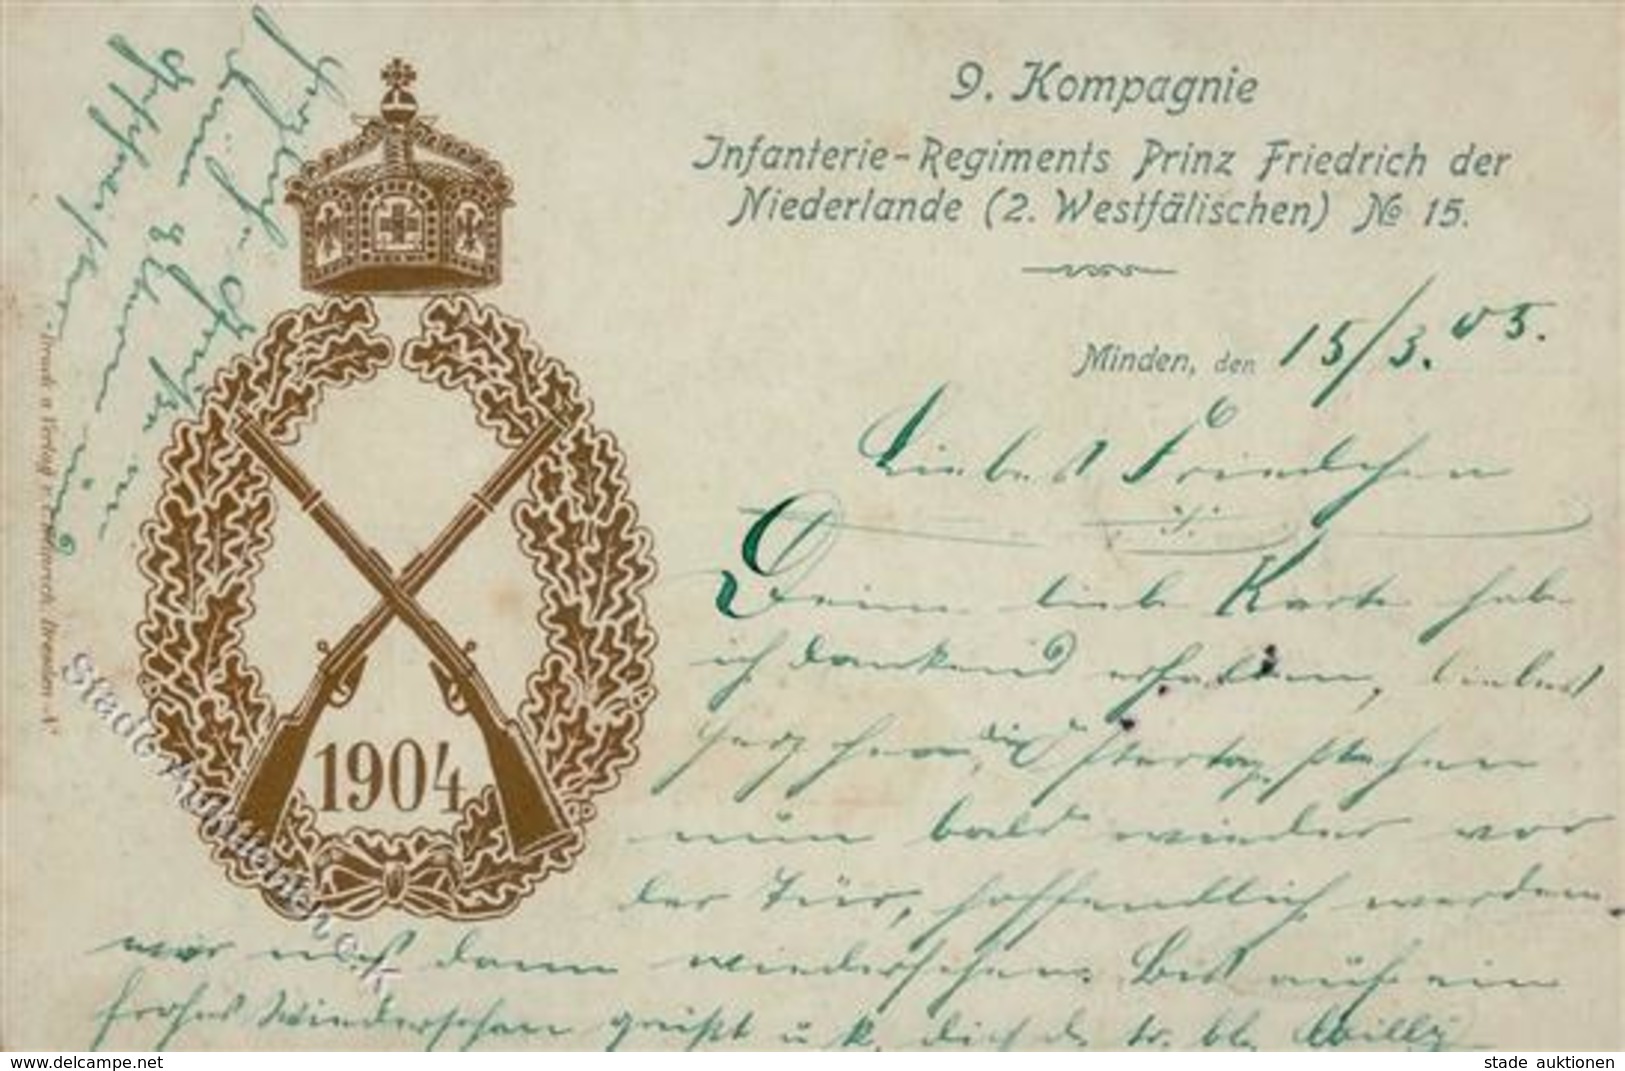 9. Kompagnie
Infanterie-Regiments Prinz Friedrich der
Niederlande (2. Westfälischen) № 15.
Minden, den 15/3. 05.
Liebes Friedchen
Deine liebe Karte habe
ich dankend erhalten, liebes
die Ostertage stehen
nun bald wieder vor
der Tür, hoffentlich werden
wir uns dann wiedersehen. Bis auf ein
frohes Wiedersehen grüßt u. k. dich d. tr. bl. Willy
Herzliche Grüße an
1904
Druck u Verlag Dresden-N.
Stade Auktionen
www.delcampe.net
stade auktionen